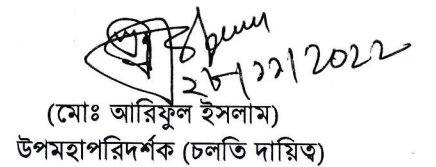 ২৮/১১/2022
(মোঃ আরিফুল ইসলাম)
উপমহাপরিদর্শক (চলতি দায়িত্ব)